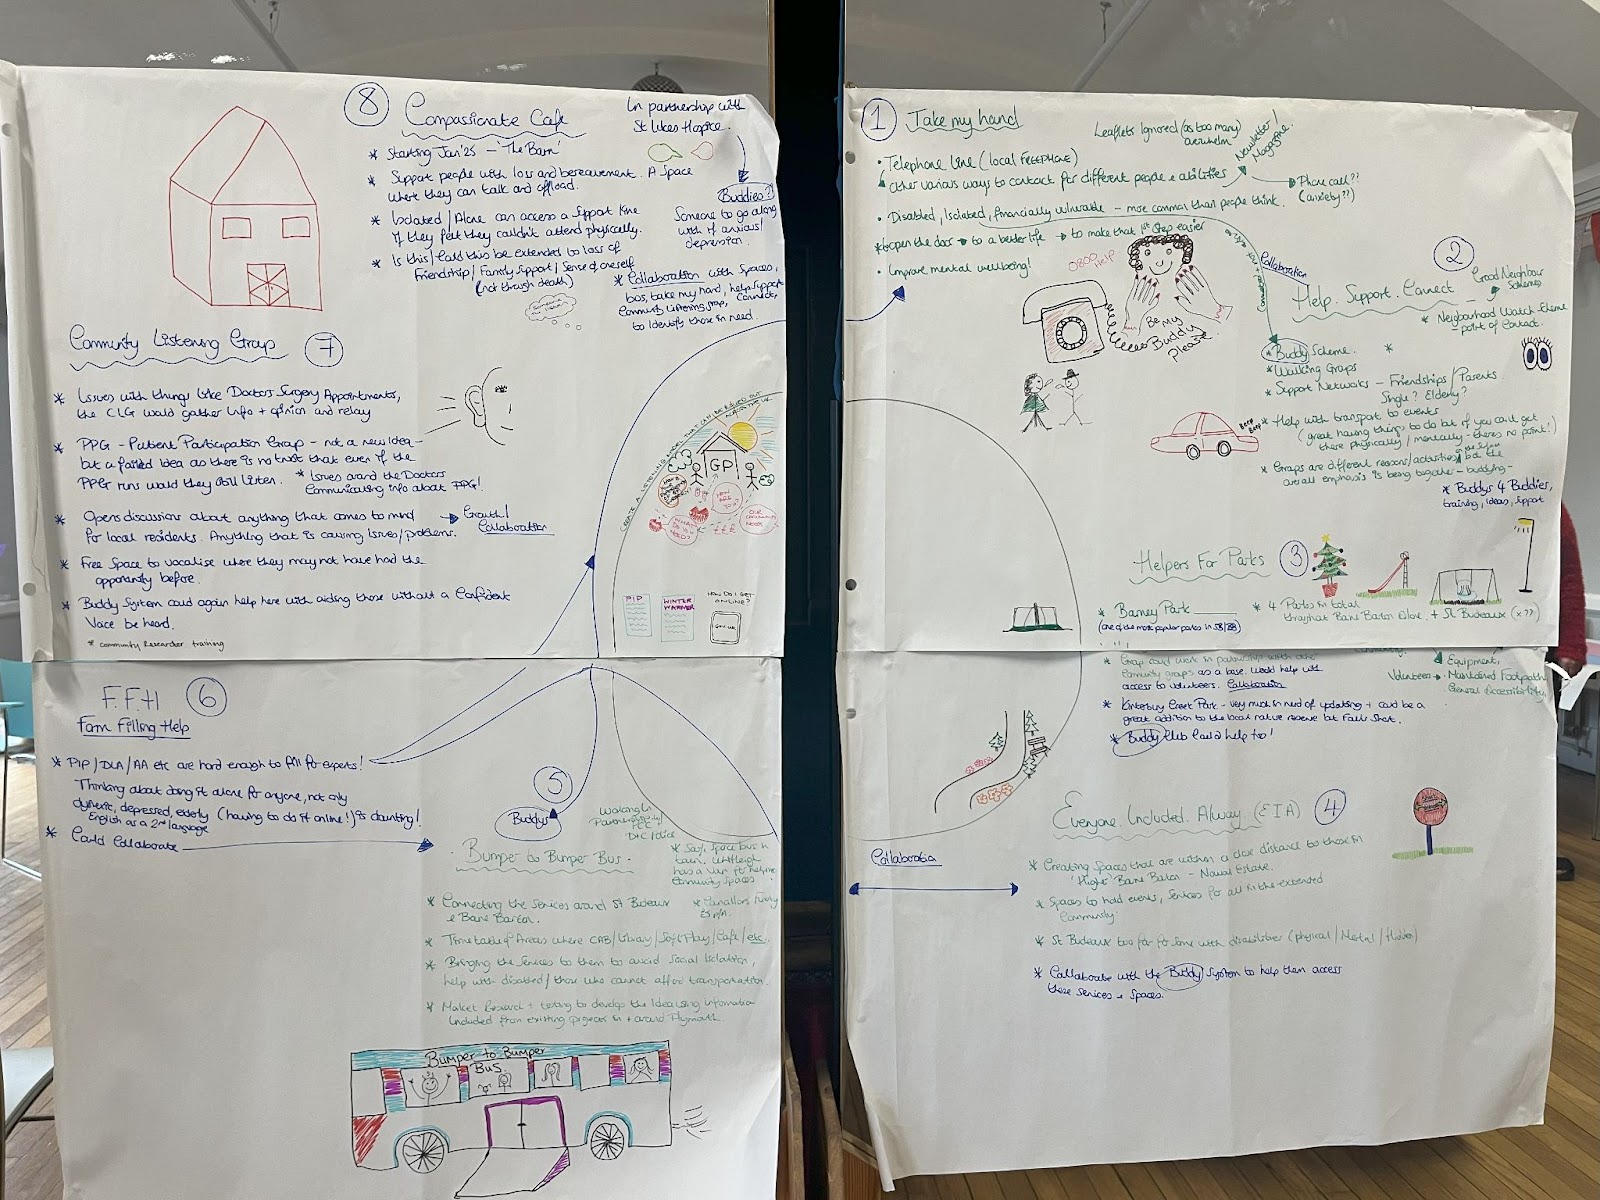 8 Compassionate Cafe
In partnership with
St Lukes Hospice.
* Starting Jan'25 - 'The Barn'
* Support people with loss and bereavement. A Space
where they can talk and offload.
* Isolated / Alone can access a support line
if they felt they couldn't attend physically.
* Is this / Could this be extended to loss of
Friendship / Family Support / Sense of oneself
(not through death)
Buddies??
Someone to go along
with if anxious/
depression.
* Collaboration with Spaces,
bus, take my hand, help support connect,
Community Listening group,
to identify those in need.
Community Listening Group 7
* Issues with things like Doctors Surgery Appointments,
the CLG would gather info + opinion and relay
* PPG - Patient Participation Group - not a new idea -
but a failed idea as there is no trust that even if the
PPG runs would they still listen.
* Issues around the Doctors
Communicating info about PPG!
* Opens discussions about anything that comes to mind
for local residents. Anything that is causing issues/problems.
Growth!
Collaboration
* Free Space to vocalise where they may not have had the
opportunity before.
* Buddy System could again help here with aiding those without a confident
Voice be heard.
* community Researcher training
GP
OUR
COMMUNITY
NEEDS
£££
PIP
WINTER
WARMER
HOW DO I GET
ONLINE?
GOV.UK
F.F.H 6
Form Filling Help
* PIP / DLA / AA etc are hard enough to fill for experts!
Thinking about doing it alone for anyone, not only
dyslexic, depressed, elderly (having to do it online!) is daunting!
English as a 2nd language
* Could Collaborate
5
Buddys
Working in
Partnership
Bumper to Bumper Bus.
* Connecting the Services around St Budeaux
& Barne Barton.
* Timetable of Areas where CAB / Library / Soft Play / Cafe / etc.
* Bringing the services to them to avoid Social Isolation,
help with disabled / those who cannot afford transportation.
* Market Research + testing to develop the Idea using information
Included from existing projects in + around Plymouth.
Bumper to Bumper
Bus.
1 Take my hand
Leaflets Ignored (as too many)
overwhelm
Newsletter /
Magazine
• Telephone line (local FREEPHONE)
Other various ways to contact for different people & abilities
Phone call??
(anxiety??)
• Disabled, Isolated, financially vulnerable - more common than people think.
* open the door to a better life to make that 1st step easier
• Improve mental wellbeing!
0800 Help
Be My
Buddy
Please
2
Collaboration
Help. Support. Connect
Good Neighbour
Schemes
* Neighbourhood Watch Scheme
point of Contact.
* Buddy Scheme.
* Walking Groups
* Support Networks - Friendships / Parents
Single? Elderly?
Beep
Beep
* Help with transport to events
(great having things to do but if you can't get
there physically / mentally - there's no point!)
* Groups are different reasons/activities but the
overall emphasis is being together - buddying -
* Buddys 4 Buddies,
training, ideas, support
Helpers For Parks 3
* Barney Park
(one of the most popular parks in SB/BB)
* 4 Parks in total
throughout Barne Barton Alone. + St Budeaux (x??)
Group could work in partnership with other
Community groups as a base. Would help with
access to volunteers. Collaboration
Volunteers
Equipment,
Maintained Footpath
General Accessibility,
* Kinterbury Creek Park - very much in need of updating + could be a
great addition to the local nature reserve but falls short.
* Buddy Club Could help too!
Everyone. Included. Alway (EIA) 4
Collaboration
* Creating Spaces that are within a close distance to those in
'Higher' Barne Barton - Naval Estate.
* Spaces to hold events, Services for all in the extended
Community.
* St Budeaux too far for some with disabilities (physical / Mental / Hidden)
* Collaborate with the Buddy System to help them access
these services & spaces.